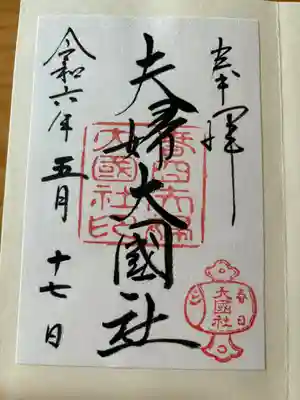 奉拝
夫婦大國社
令和六年五月十七日
春日夫婦
大國社印
春日
大國社